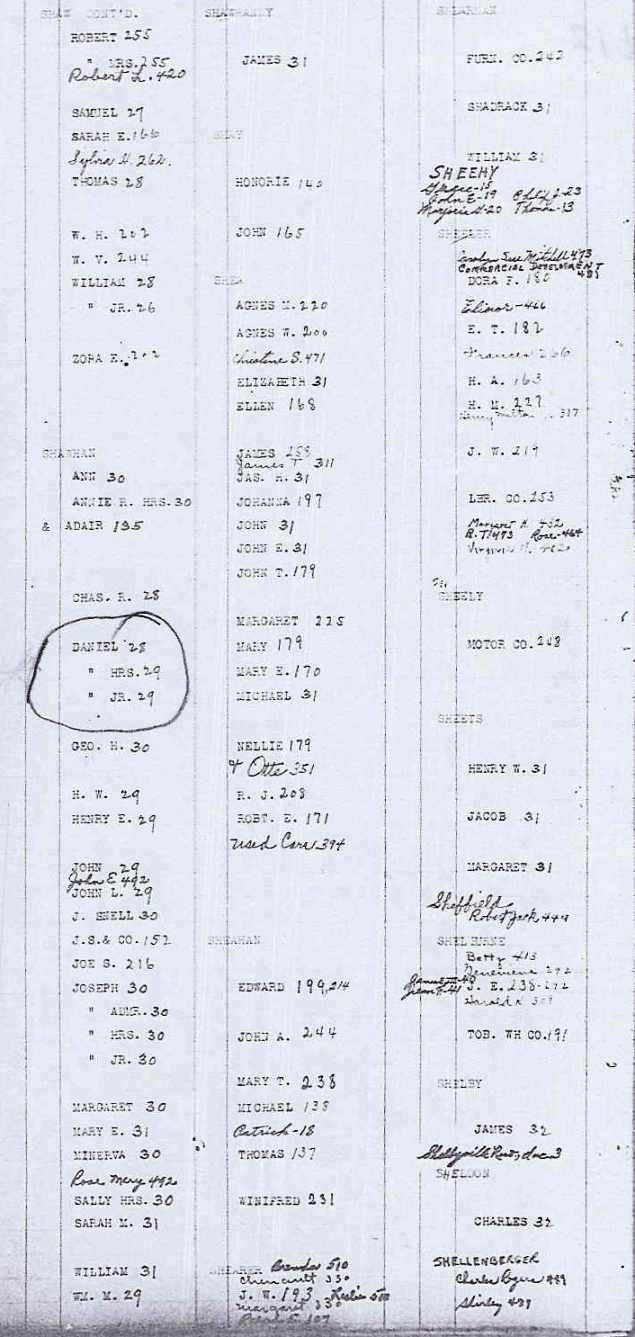 SHAW CONT'D.
ROBERT 255
" HRS. 255
Robert L. 420
SAMUEL 27
SARAH E. 166
Sylvia H. 262.
THOMAS 28
W. H. 202
W. V. 244
WILLIAM 28
" JR. 26
ZORA E. 202
SHAWHAN
ANN 30
ANNIE R. HRS. 30
& ADAIR 135
CHAS. R. 28
DANIEL 28
" HRS. 29
" JR. 29
GEO. H. 30
H. W. 29
HENRY E. 29
JOHN 29
John E 492
JOHN L. 29
J. SNELL 30
J.S.& CO. 152
JOE S. 216
JOSEPH 30
" ADMR. 30
" HRS. 30
" JR. 30
MARGARET 30
MARY E. 31
MINERVA 30
Rose Mary 492
SALLY HRS. 30
SARAH M. 31
WILLIAM 31
WM. M. 29
SHAWHANDY
JAMES 31
SHAY
HONORIE 140
JOHN 165
SHEA
AGNES M. 220
AGNES W. 200
Christine S. 471
ELIZABETH 31
ELLEN 168
JAMES 258
James T 311
JAS. H. 31
JOHANNA 197
JOHN 31
JOHN E. 31
JOHN T. 179
MARGARET 225
MARY 179
MARY E. 170
MICHAEL 31
NELLIE 179
& Otte 351
R. J. 208
ROBT. E. 171
Used Cars 394
SHEAHAN
EDWARD 199, 214
JOHN A. 244
MARY T. 238
MICHAEL 138
Patrick-18
THOMAS 137
WINIFRED 231
SHEARER Brenda 510
Chenault 330
J. W. 193 Leslie 510
Margaret 330
SHEARMAN
FURN. CO. 242
SHADRACK 31
WILLIAM 31
SHEEHY
Grace-15
John E-19 23
Marjorie H-20 Thomas-13
SHEELER
Carolyn Sue Mitchell 473
COMMERCIAL DEVELOPMENT 481
DORA F. 180
Elinor-466
E. T. 182
Frances 266
H. A. 163
H. M. 227
Henry Milton 317
J. W. 219
LBR. CO. 253
Margaret H. 452
R.T. 473 Rose-464
Virginia
SHEELY
MOTOR CO. 208
SHEETS
HENRY W. 31
JACOB 31
MARGARET 31
Sheffield
Robert Jack
SHELBURNE
Betty 413
Genevieve 292
J. E. 238-292
Harold K
TOB. WH CO. 191
SHELBY
JAMES 32
Shelbyville 3
SHELDON
CHARLES 32
SHELLENBERGER
Charles Rogers 489
Shirley 489